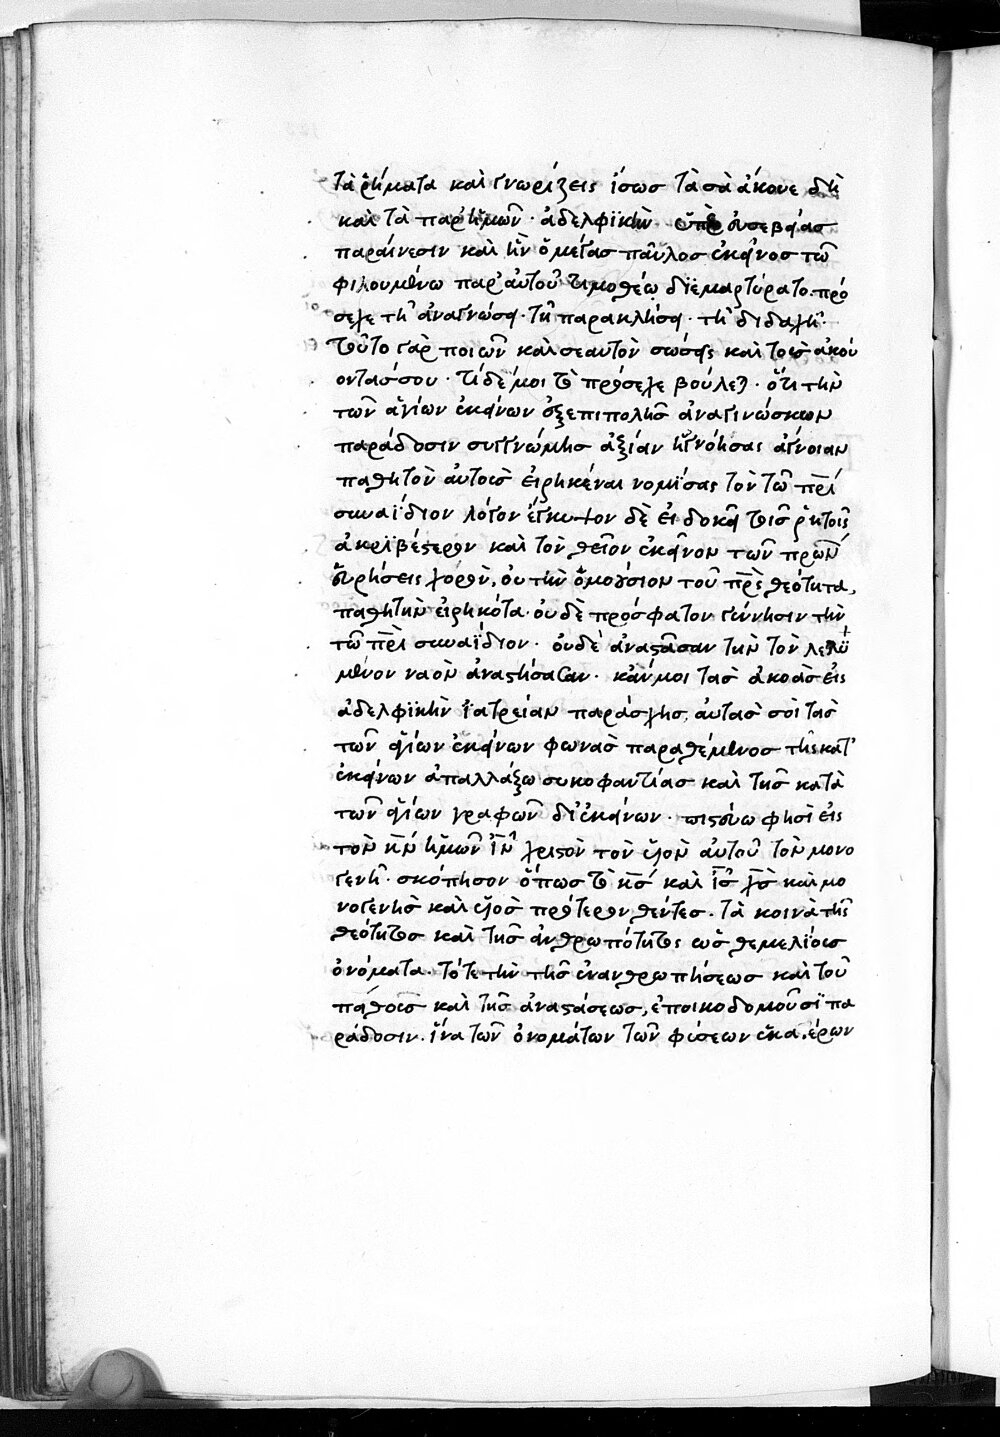 τὰ ῥήματα καὶ γνωρίζεις ἴσως τὰ σὰ ἄκουε δὴ
καὶ τὰ παρ' ἡμῶν · ἀδελφικὴν ὑπὲρ εὐσεβείας
παραίνεσιν καὶ ἣν ὁ μέγας παῦλος ἐκεῖνος τῶ
φιλουμένω παρ' αὐτοῦ τιμοθέω διεμαρτύρατο · πρό
σεχε τῆ ἀναγνώσει · τῆ παρακλήσει · τῆ διδαχῆ ·
τοῦτο γὰρ ποιῶν καὶ σεαυτὸν σώσεις καὶ τοὺς ἀκού
οντας σου · τί δέ μοι τὸ πρόσεχε βούλεται · ὅτι τὴν
τῶν ἁγίων ἐκείνων ἐξεπιπολῆς ἀναγινώσκων
παράδοσιν συγγνώμης ἀξίαν ἠγνόησας ἄγνοιαν
παθητὸν αὐτοὺς εἰρηκέναι νομίσας τὸν τῶ π̅ρ̅ι̅
συναΐδιον λόγον ἔγκυψον δὲ εἰ δοκεῖ τοῖς ῥητοῖς
ἀκριβέστερον καὶ τὸν θεῖον ἐκεῖνον τῶν π̅ρ̅ω̅ν̅
εὑρήσεις χορὸν, οὐ τὴν ὁμοούσιον τοῦ π̅ρ̅ς̅ θεότητα,
παθητὴν εἰρηκότα · οὐδὲ πρόσφατον γέννησιν τὴν
τῶ π̅ρ̅ι̅ συναΐδιον · οὐδὲ ἀναστᾶσαν τὴν τὸν λελυ
μένον ναὸν ἀναστήσασαν · κἄν μοι τὰς ἀκοὰς εἰς
ἀδελφικὴν ἰατρείαν παράσχης, αὐτάς σοι τὰς
τῶν ἁγίων ἐκείνων φωνὰς παραθέμενος τῆς κατ'
ἐκείνων ἀπαλλάξω συκοφαντίας καὶ τῆς κατὰ
τῶν ἁγίων γραφῶν δι' ἐκείνων · πιστεύω φησὶ εἰς
τὸν κ̅ν̅ ἡμῶν ι̅ν̅ χριστὸν τὸν υἱὸν αὐτοῦ τὸν μονο
γενῆ · σκόπησον ὅπως τὸ κ̅ς̅ καὶ ι̅ς̅ χ̅ς̅ καὶ μο
νογενὴς καὶ υἱὸς πρότερον θέντες · τὰ κοινὰ τῆς
θεότητος καὶ τῆς ἀνθρωπότητος ὡς θεμελίους
ὀνόματα · τότε τὴν τῆς ἐνανθρωπήσεως καὶ τοῦ
πάθους καὶ τῆς ἀναστάσεως, ἐποικοδομοῦσι πα
ράδοσιν · ἵνα τῶν ὀνομάτων τῶν φύσεων ἑκατέρων